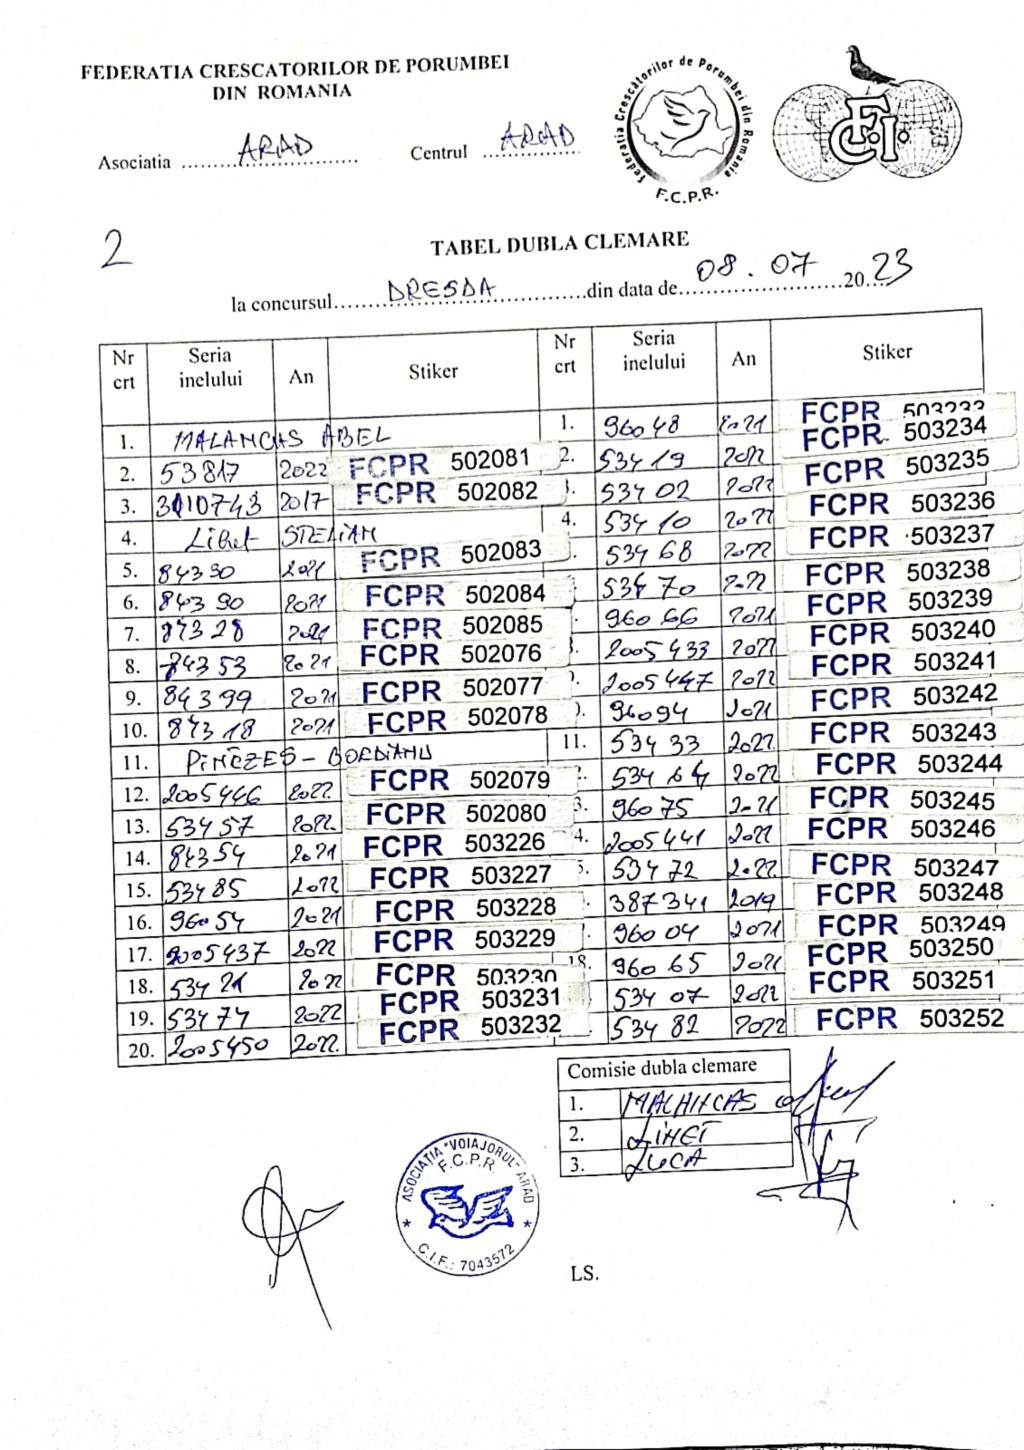 FEDERATIA CRESCATORILOR DE PORUMBEI
DIN ROMANIA
Asociatia ARAD Centrul ARAD
Federatia Crescătorilor de Porumbei din Romania
F.C.P.R.
F.C.I.
2
TABEL DUBLA CLEMARE
la concursul DRESDA din data de 08.07 2023
Nr crt Seria inelului An Stiker Nr crt Seria inelului An Stiker
1. MALANCAS ABEL 1. 96048 2021 FCPR 503233
2. 53817 2022 FCPR 502081 2. 53419 2022 FCPR 503234
3. 3010743 2017 FCPR 502082 53402 2022 FCPR 503235
4. Lihet STELIAN 4. 53410 2022 FCPR 503236
5. 84330 2021 FCPR 502083 53468 2022 FCPR 503237
6. 84390 2021 FCPR 502084 53470 2022 FCPR 503238
7. 87328 2021 FCPR 502085 96066 2021 FCPR 503239
8. 84353 2021 FCPR 502076 2005433 2022 FCPR 503240
9. 84399 2021 FCPR 502077 2005447 2022 FCPR 503241
10. 87318 2021 FCPR 502078 96094 2021 FCPR 503242
11. PINCZES - BORDIANU 11. 53433 2022 FCPR 503243
12. 2005446 2022 FCPR 502079 53464 2022 FCPR 503244
13. 53457 2022 FCPR 502080 3. 96075 2021 FCPR 503245
14. 84354 2021 FCPR 503226 4. 2005441 2022 FCPR 503246
15. 53485 2022 FCPR 503227 5. 53472 2022 FCPR 503247
16. 96054 2021 FCPR 503228 387341 2019 FCPR 503248
17. 2005437 2022 FCPR 503229 96004 2021 FCPR 503249
18. 53421 2022 FCPR 503230 18. 96065 2021 FCPR 503250
19. 53474 2022 FCPR 503231 53407 2022 FCPR 503251
20. 2005450 2022 FCPR 503232 53482 2022 FCPR 503252
Comisie dubla clemare
1. MALANCAS
2. LIHET
3. LUCA
ASOCIATIA "VOIAJORUL" ARAD
F.C.P.R.
C.I.F.: 7043572
LS.